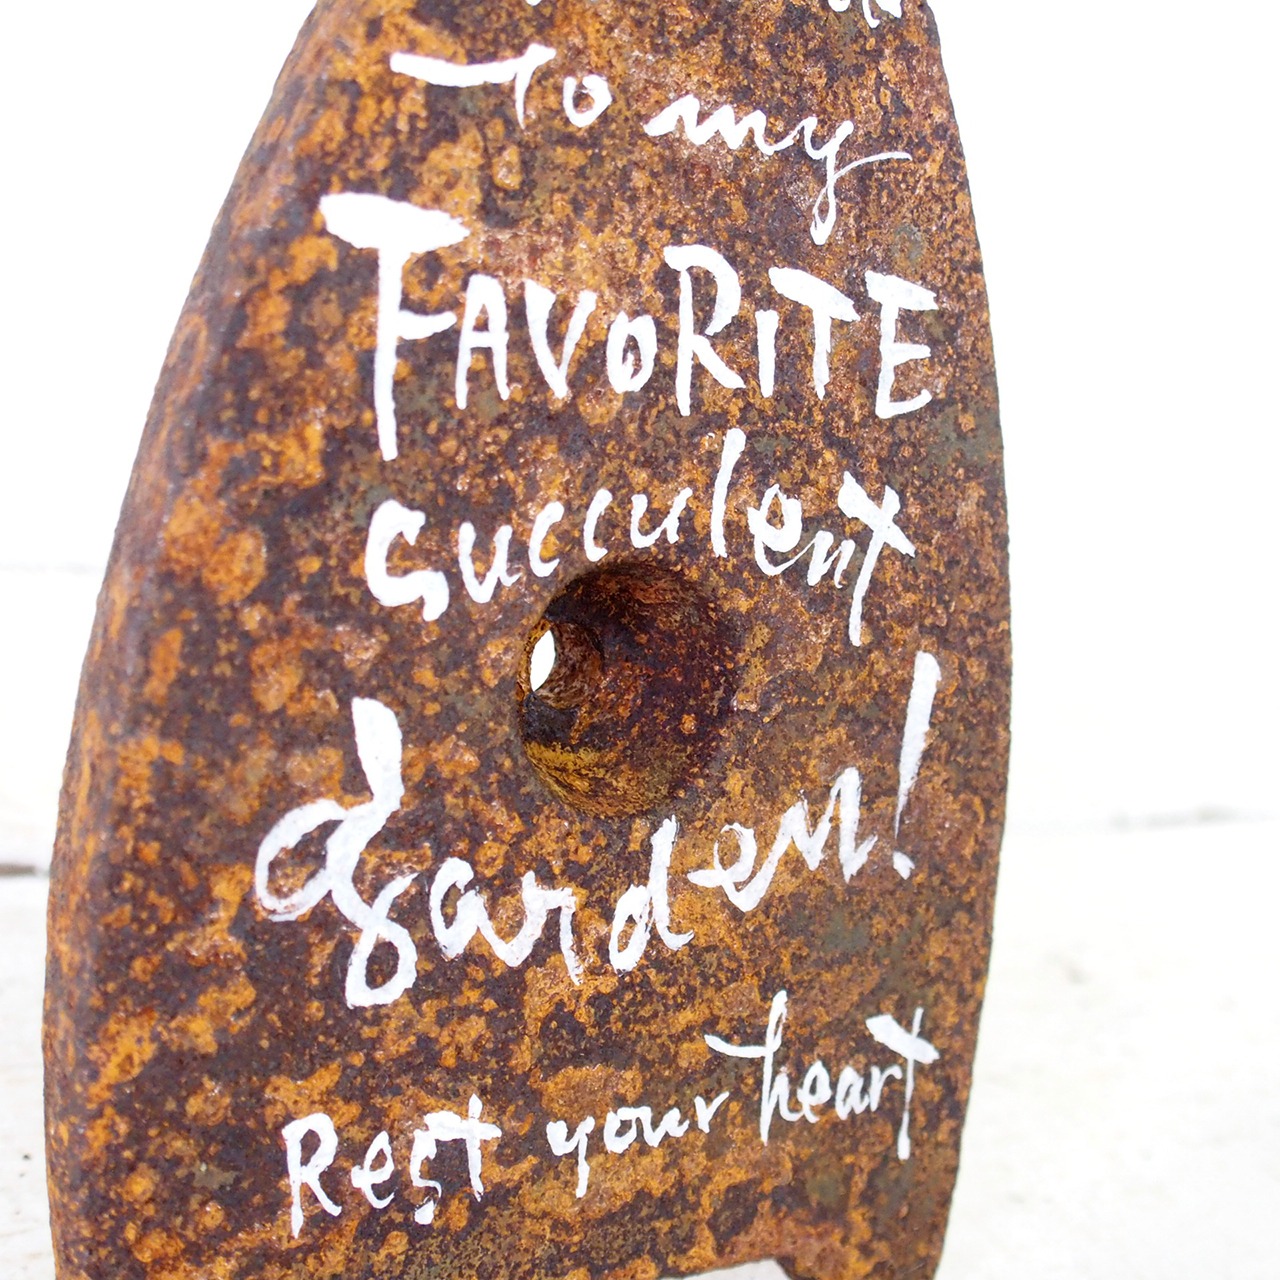 To my
FAVORITE
succulent
garden!
Rest your heart